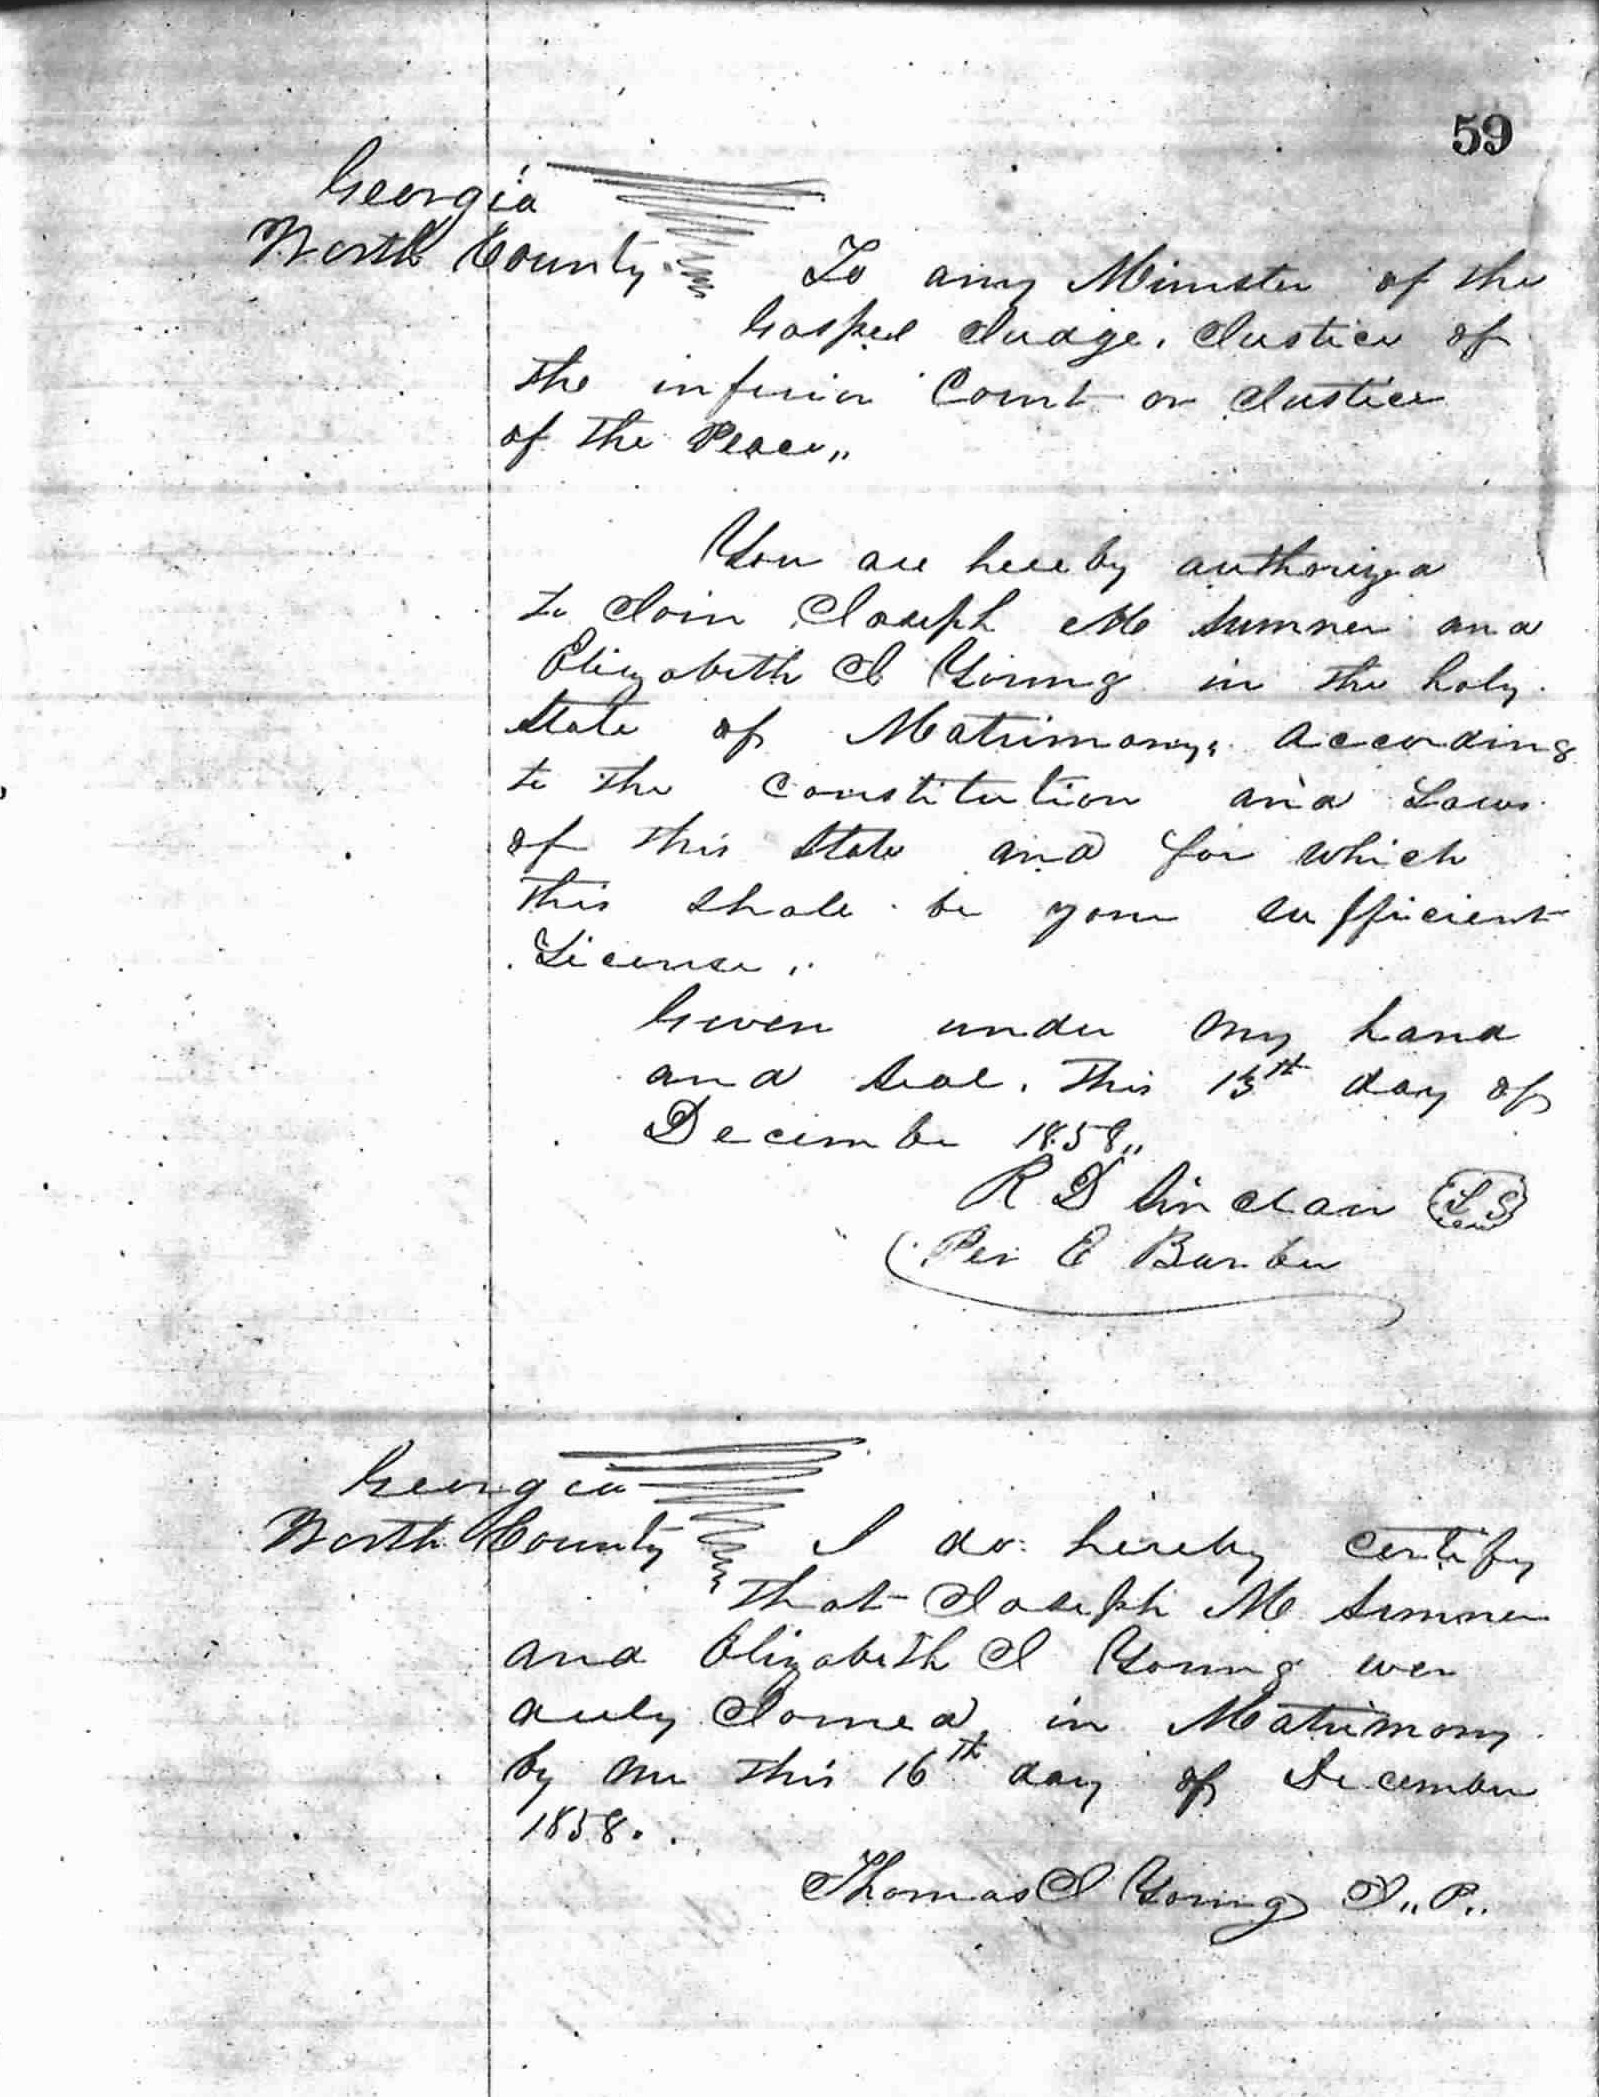 59
Georgia
Worth County
To any Minister of the
Gospel Judge. Justice of
the inferior Court or Justice
of the Peace„
You are hereby authorized
to Join Joseph M Sumner and
Elizabeth J Young in the holy
State of Matrimony, according
to the Constitution and Laws
of this State and for which
this shall be your sufficient
License„
Given under my hand
and seal. This 13th day of
December 1858„
R D Sinclair LS
Per E Barber
Georgia
Worth County
I do hereby certify
that Joseph M Sumner
and Elizabeth J Young wer
duly Joined in Matrimony
by me this 16th day of December
1858.
Thomas J Young J„P„